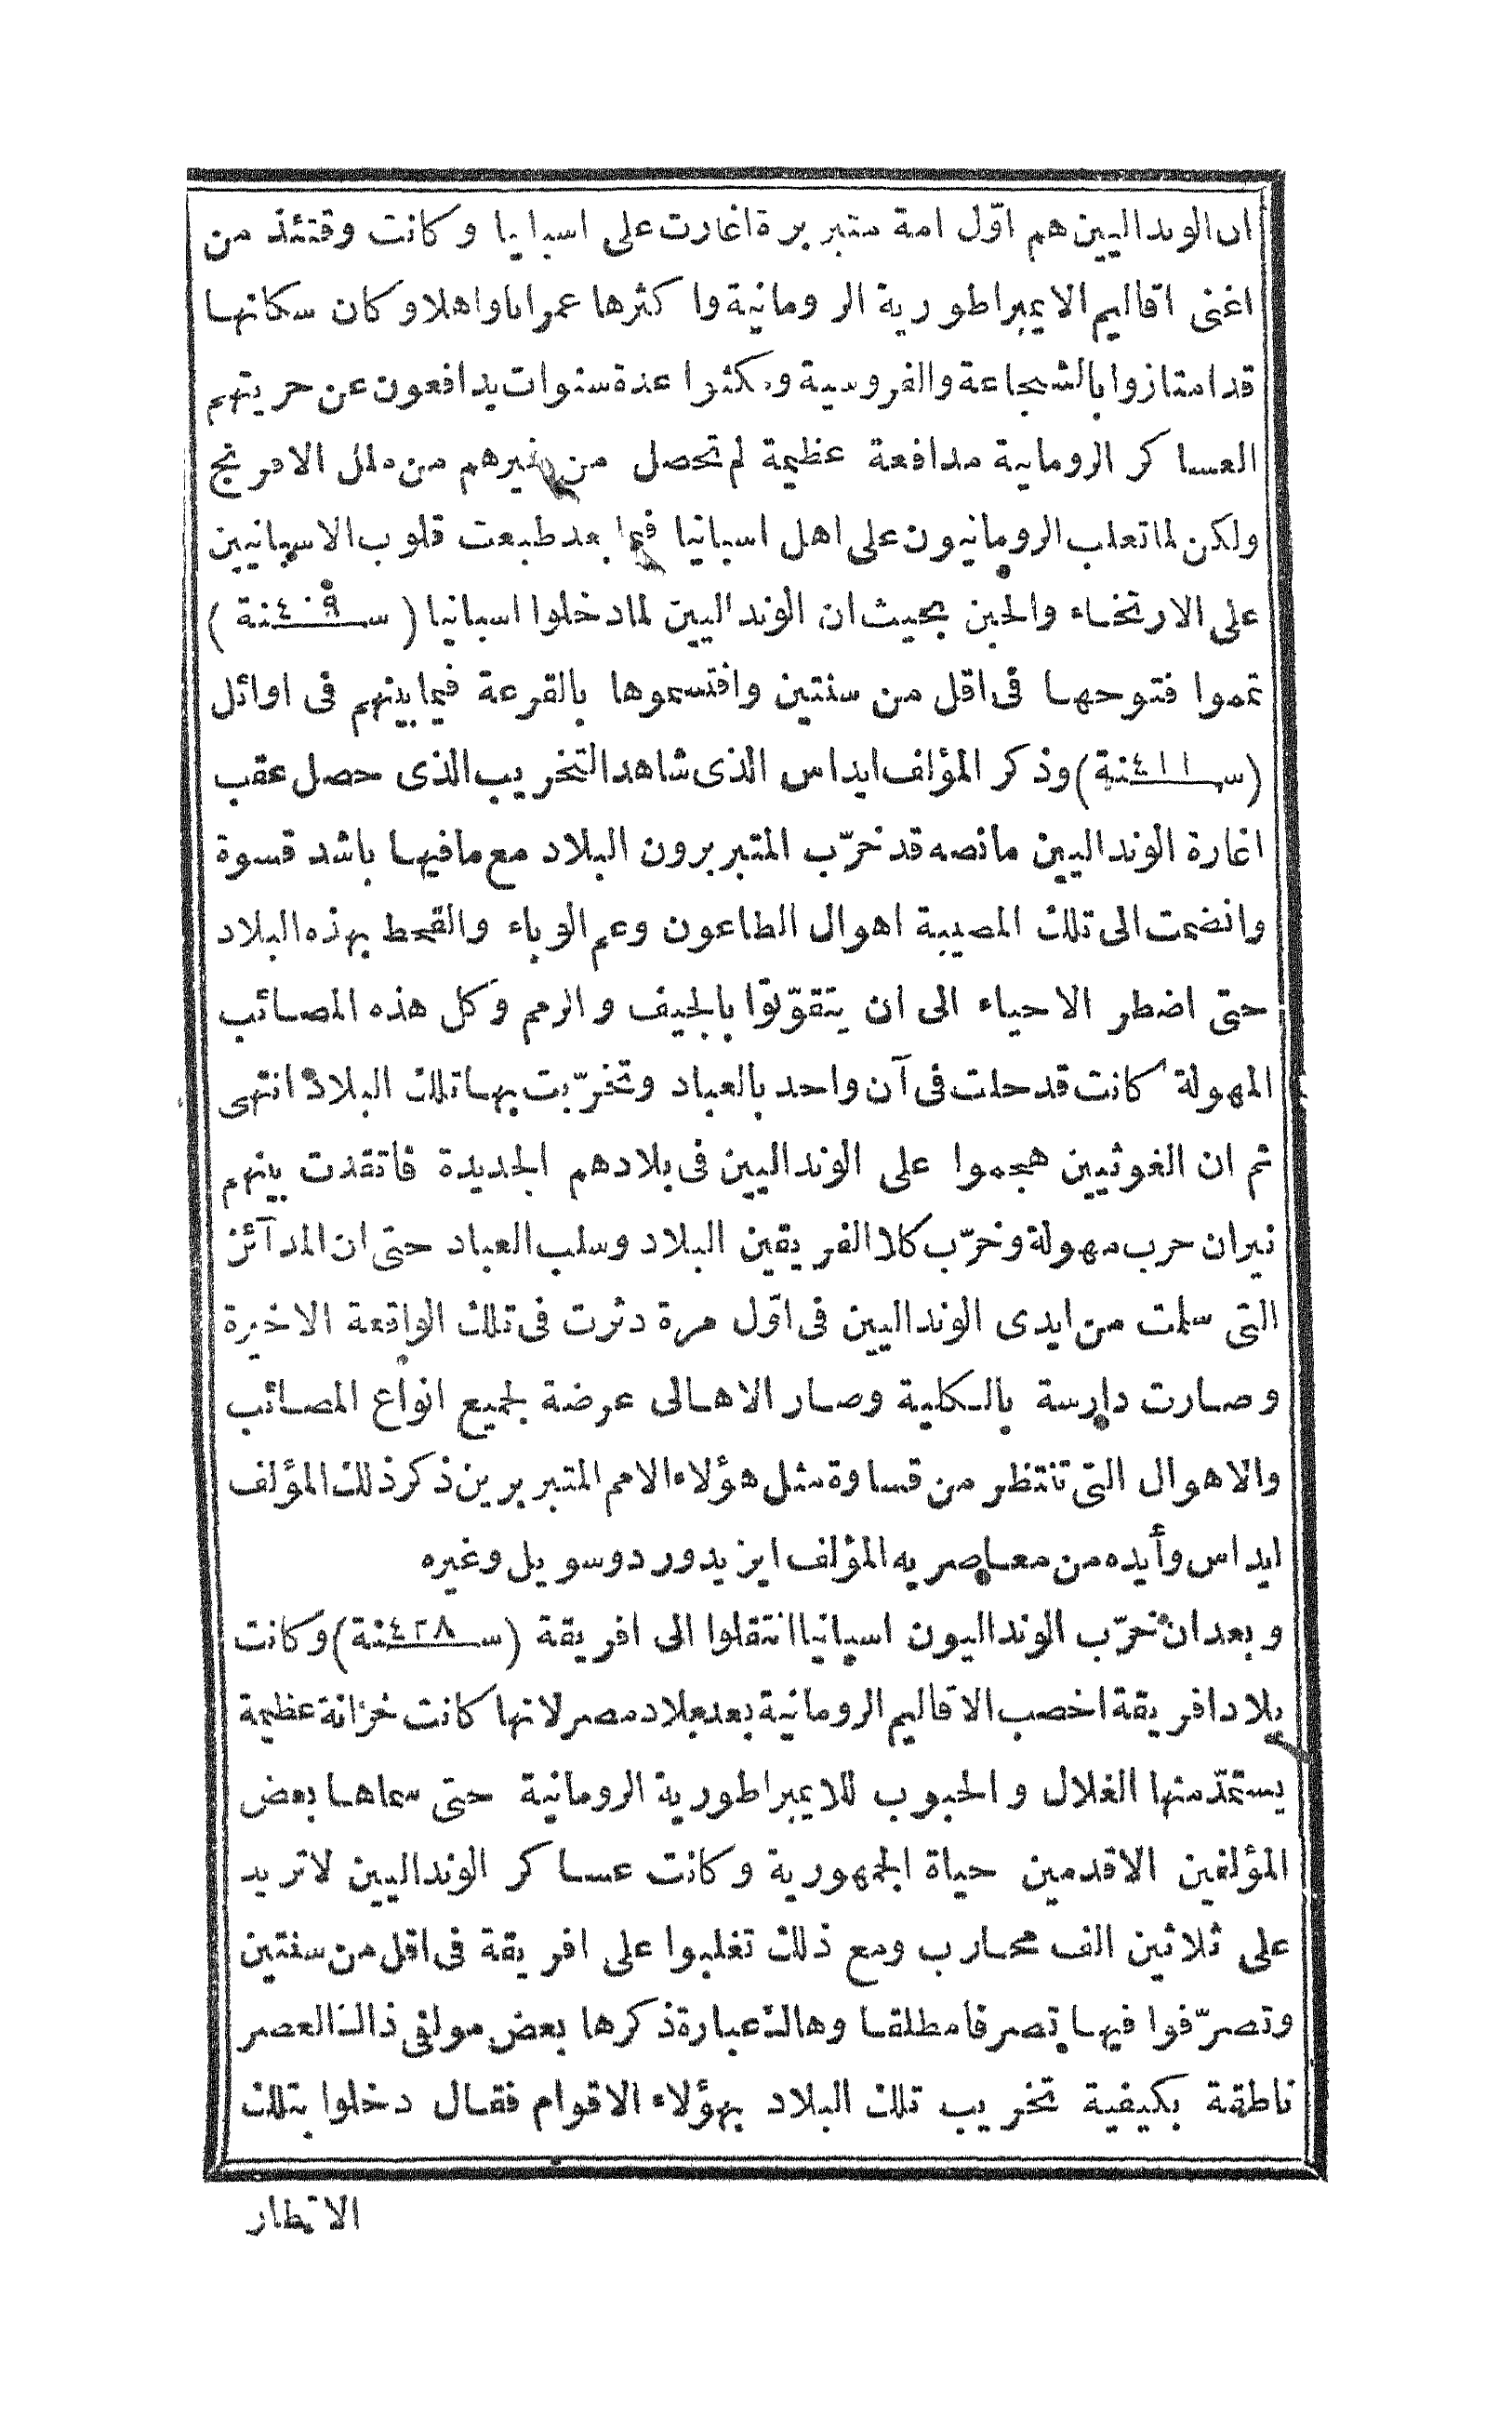 ان الونداليين هم اوّل امة متبربرة اغارت على اسبانيا وكانت وقتئذ من
اغنى اقاليم الايمبراطورية الرومانية واكثرها عمرانا واهلا وكان سكانها
قد امتازوا بالشجاعة والفروسية ومكثوا عدة سنوات يدافعون عن حريتهم
العساكر الرومانية مدافعة عظيمة لم تحصل من غيرهم من ملل الافرنج
ولكن لما تغلب الرومانيون على اهل اسبانيا فيما بعد طبعت قلوب الاسبانيين
على الارتخاء والجبن بحيث ان الونداليين لما دخلوا اسبانيا (سنة ٤٠٩)
تمموا فتوحها فى اقل من سنتين واقتسموها بالقرعة فيما بينهم فى اوائل
(سنة ٤١١) وذكر المؤلف ايداس الذى شاهد التخريب الذى حصل عقب
اغارة الونداليين مانصه قد خرّب المتبربرون البلاد مع مافيها باشد قسوة
وانضمت الى تلك المصيبة اهوال الطاعون وعم الوباء والقحط بهذه البلاد
حتى اضطر الاحياء الى ان يتقوّتوا بالجيف والرمم وكل هذه المصائب
المهولة كانت قد حلت فى آن واحد بالعباد وتخرّبت بها تلك البلاد انتهى
ثم ان الغوثيين هجموا على الونداليين فى بلادهم الجديدة فاتقدت بينهم
نيران حرب مهولة وخرّب كلا الفريقين البلاد وسلب العباد حتى ان المدآئن
التى سلمت من ايدى الونداليين فى اوّل مرة دثرت فى تلك الواقعة الاخيرة
وصارت دارسة بالكلية وصار الاهالى عرضة لجميع انواع المصائب
والاهوال التى تنتظر من قساوة مثل هؤلاء الامم المتبربرين ذكر ذلك المؤلف
ايداس وأيده من معاصريه المؤلف ايزيدور دوسويل وغيره
وبعد ان خرّب الونداليون اسبانيا انتقلوا الى افريقة (سنة ٤٢٨) وكانت
بلاد افريقة اخصب الاقاليم الرومانية بعد بلاد مصر لانها كانت خزانة عظيمة
يستمدّ منها الغلال والحبوب للايمبراطورية الرومانية حتى سماها بعض
المؤلفين الاقدمين حياة الجمهورية وكانت عساكر الونداليين لاتريد
على ثلاثين الف محارب ومع ذلك تغلبوا على افريقة فى اقل من سنتين
وتصرّفوا فيها تصرفا مطلقا وهاك عبارة ذكرها بعض مولفى ذاك العصر
ناطقة بكيفية تخريب تلك البلاد بهؤلاء الاقوام فقال دخلوا بتلك
الاقطار